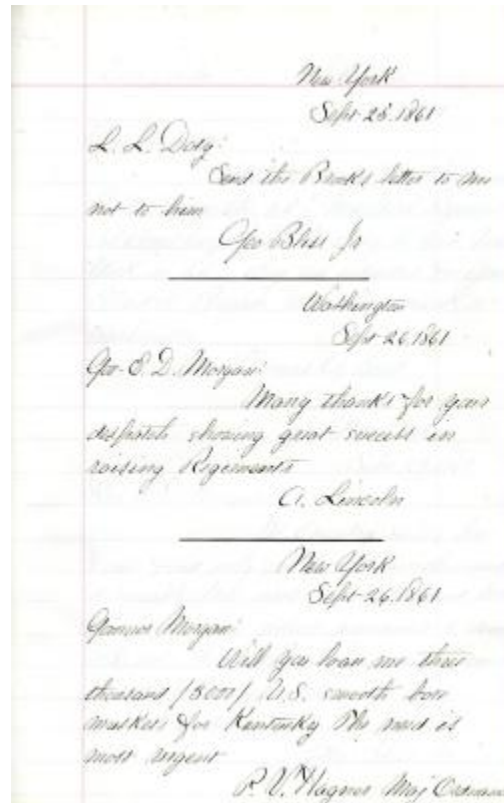 New York
Sept 25. 1861
L. L. Doty:
Send the Brooks letter to me
not to him
Geo Bliss Jr
Washington
Sept 26 1861
Gov. E. D. Morgan:
Many thanks for your
dispatch showing great success in
raising Regiments
A. Lincoln
New York
Sept 26. 1861
Governor Morgan:
Will you loan me three
thousand (3000) U.S. smooth bore
muskets for Kentucky The need is
most urgent
P. V. Hagner Maj Ordnance